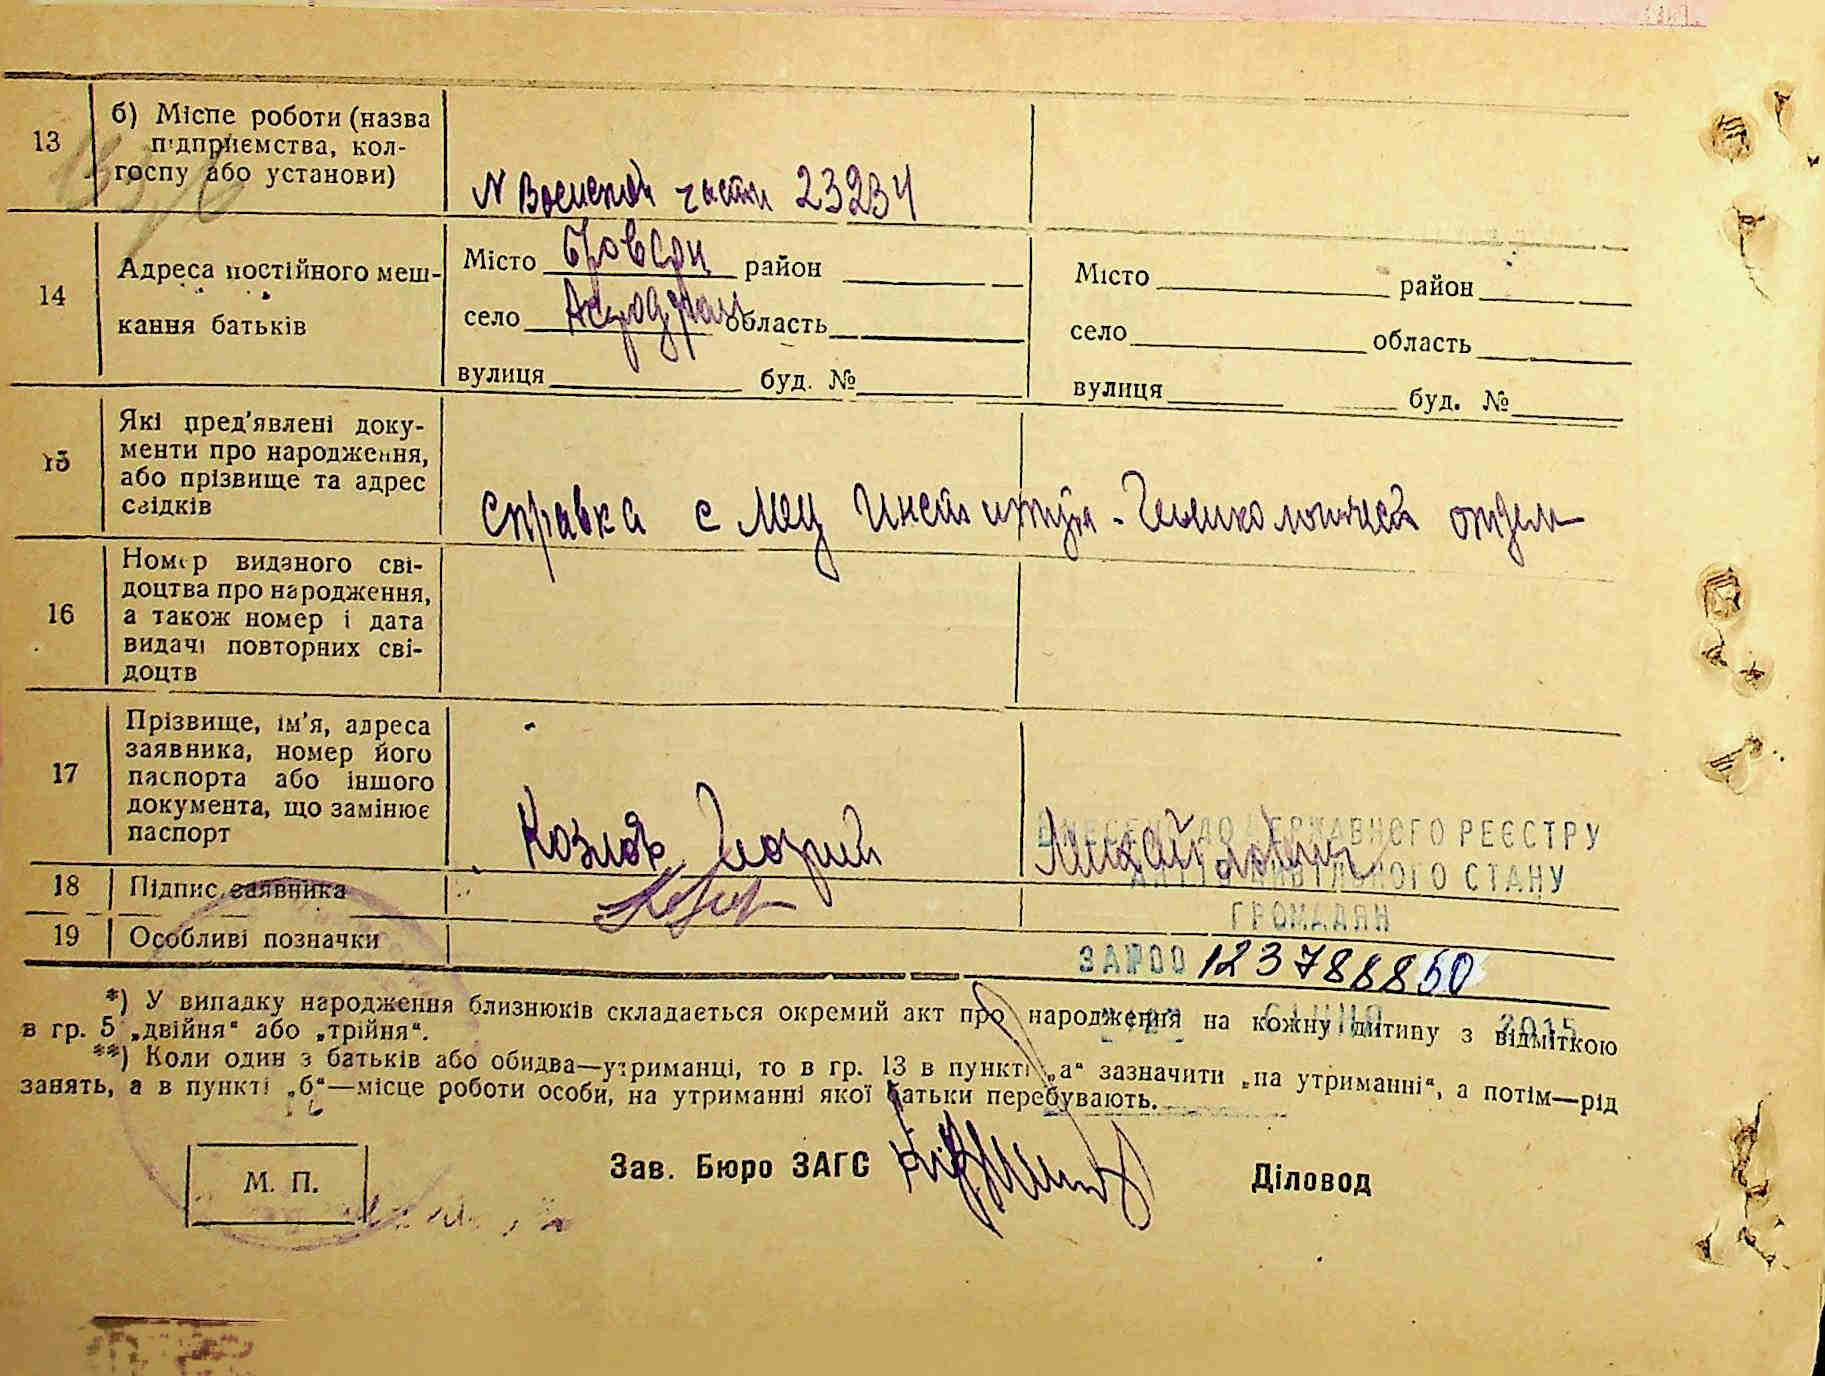 13
б) Місце роботи (назва
підприємства, кол-
госпу або установи)
N Военской части 23234
14
Адреса постійного меш-
кання батьків
Місто район
село Аєродром область
вулиця буд. №
Місто район
село область
вулиця буд. №
15
Які пред'явлені доку-
менти про народження,
або прізвище та адрес
свідків
справка с мед института - Гинекологическ отдел
16
Номер виданого сві-
доцтва про народження,
а також номер і дата
видачі повторних сві-
доцтв
17
Прізвище, ім'я, адреса
заявника, номер його
паспорта або іншого
документа, що замінює
паспорт
Козлов Михайлович
ВНЕСЕНО ДО ДЕРЖАВНОГО РЕЄСТРУ
АКТІВ ЦИВІЛЬНОГО СТАНУ
ГРОМАДЯН
18
Підпис заявника
19
Особливі позначки
ЗА №00 123788850
СІЧНЯ 2015
*) У випадку народження близнюків складається окремий акт про народження на кожну дитину з відміткою
в гр. 5 „двійня“ або „трійня“.
**) Коли один з батьків або обидва—утриманці, то в гр. 13 в пункті „а“ зазначити „на утриманні“, а потім—рід
занять, а в пункті „б“—місце роботи особи, на утриманні якої батьки перебувають.
М. П.
Зав. Бюро ЗАГС
Діловод